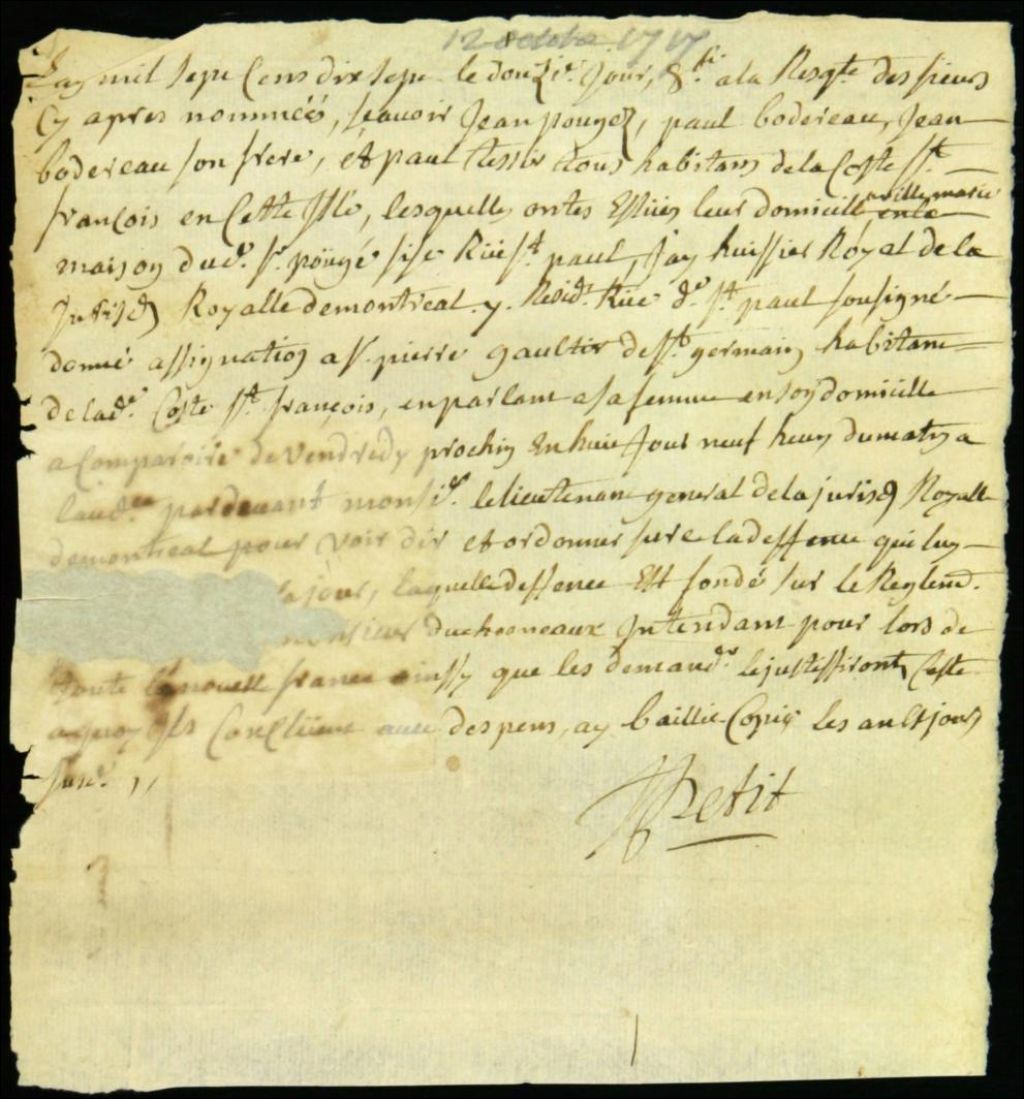 12 octobre 1717
Lan mil sept Cens dix sept le douzie. Jour, 8.bre a la Reqte. des sieurs
Cy apres nommeés, scauoir Jean pougez, paul bodereau, Jean
bodereau son frere, et paul tessier tous habitans de la Coste st.
françois en Cette Isle, lesquelles ont es Eslües leur domicille ville marie
maison dud. sr. pougé sise Rüe st. paul, J'ay huissier Royal de la
Jurisd. Royalle de montreal. y. Resid. Rüe de. st. paul sousigné
donné assignation a sr. pierre gaultier de st. germain habitant
de lad. Coste st. françois, en parlant a sa femme en son domicille
a Comparoire de Vendredy prochin En huit Jour neuf heur du matin a
laud.ce pardeuant monsieur. le lieutenant general de la jurisd Royalle
de montreal pour voir dir et ordonner sur la deffence qui luy
a jour, laquelle deffence Est fondé sur le Reglemt.
monsieur duchesneaux Intendant pour lors de
toute la nouvelle france ainssy que les demandr. le justiffiront, Ceste
a quoy ils Concluent auec despens, ay baillié Copie les an et jours
susd. //
Petit